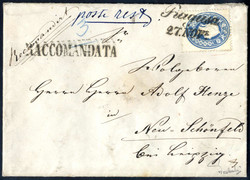 poste rest
Recomandirt
RACCOMANDATA
27. Nov.
Wolgeboren
Herrn Herrn Adolf Henze
in
Neu-Schönfeld
bei Leipzig